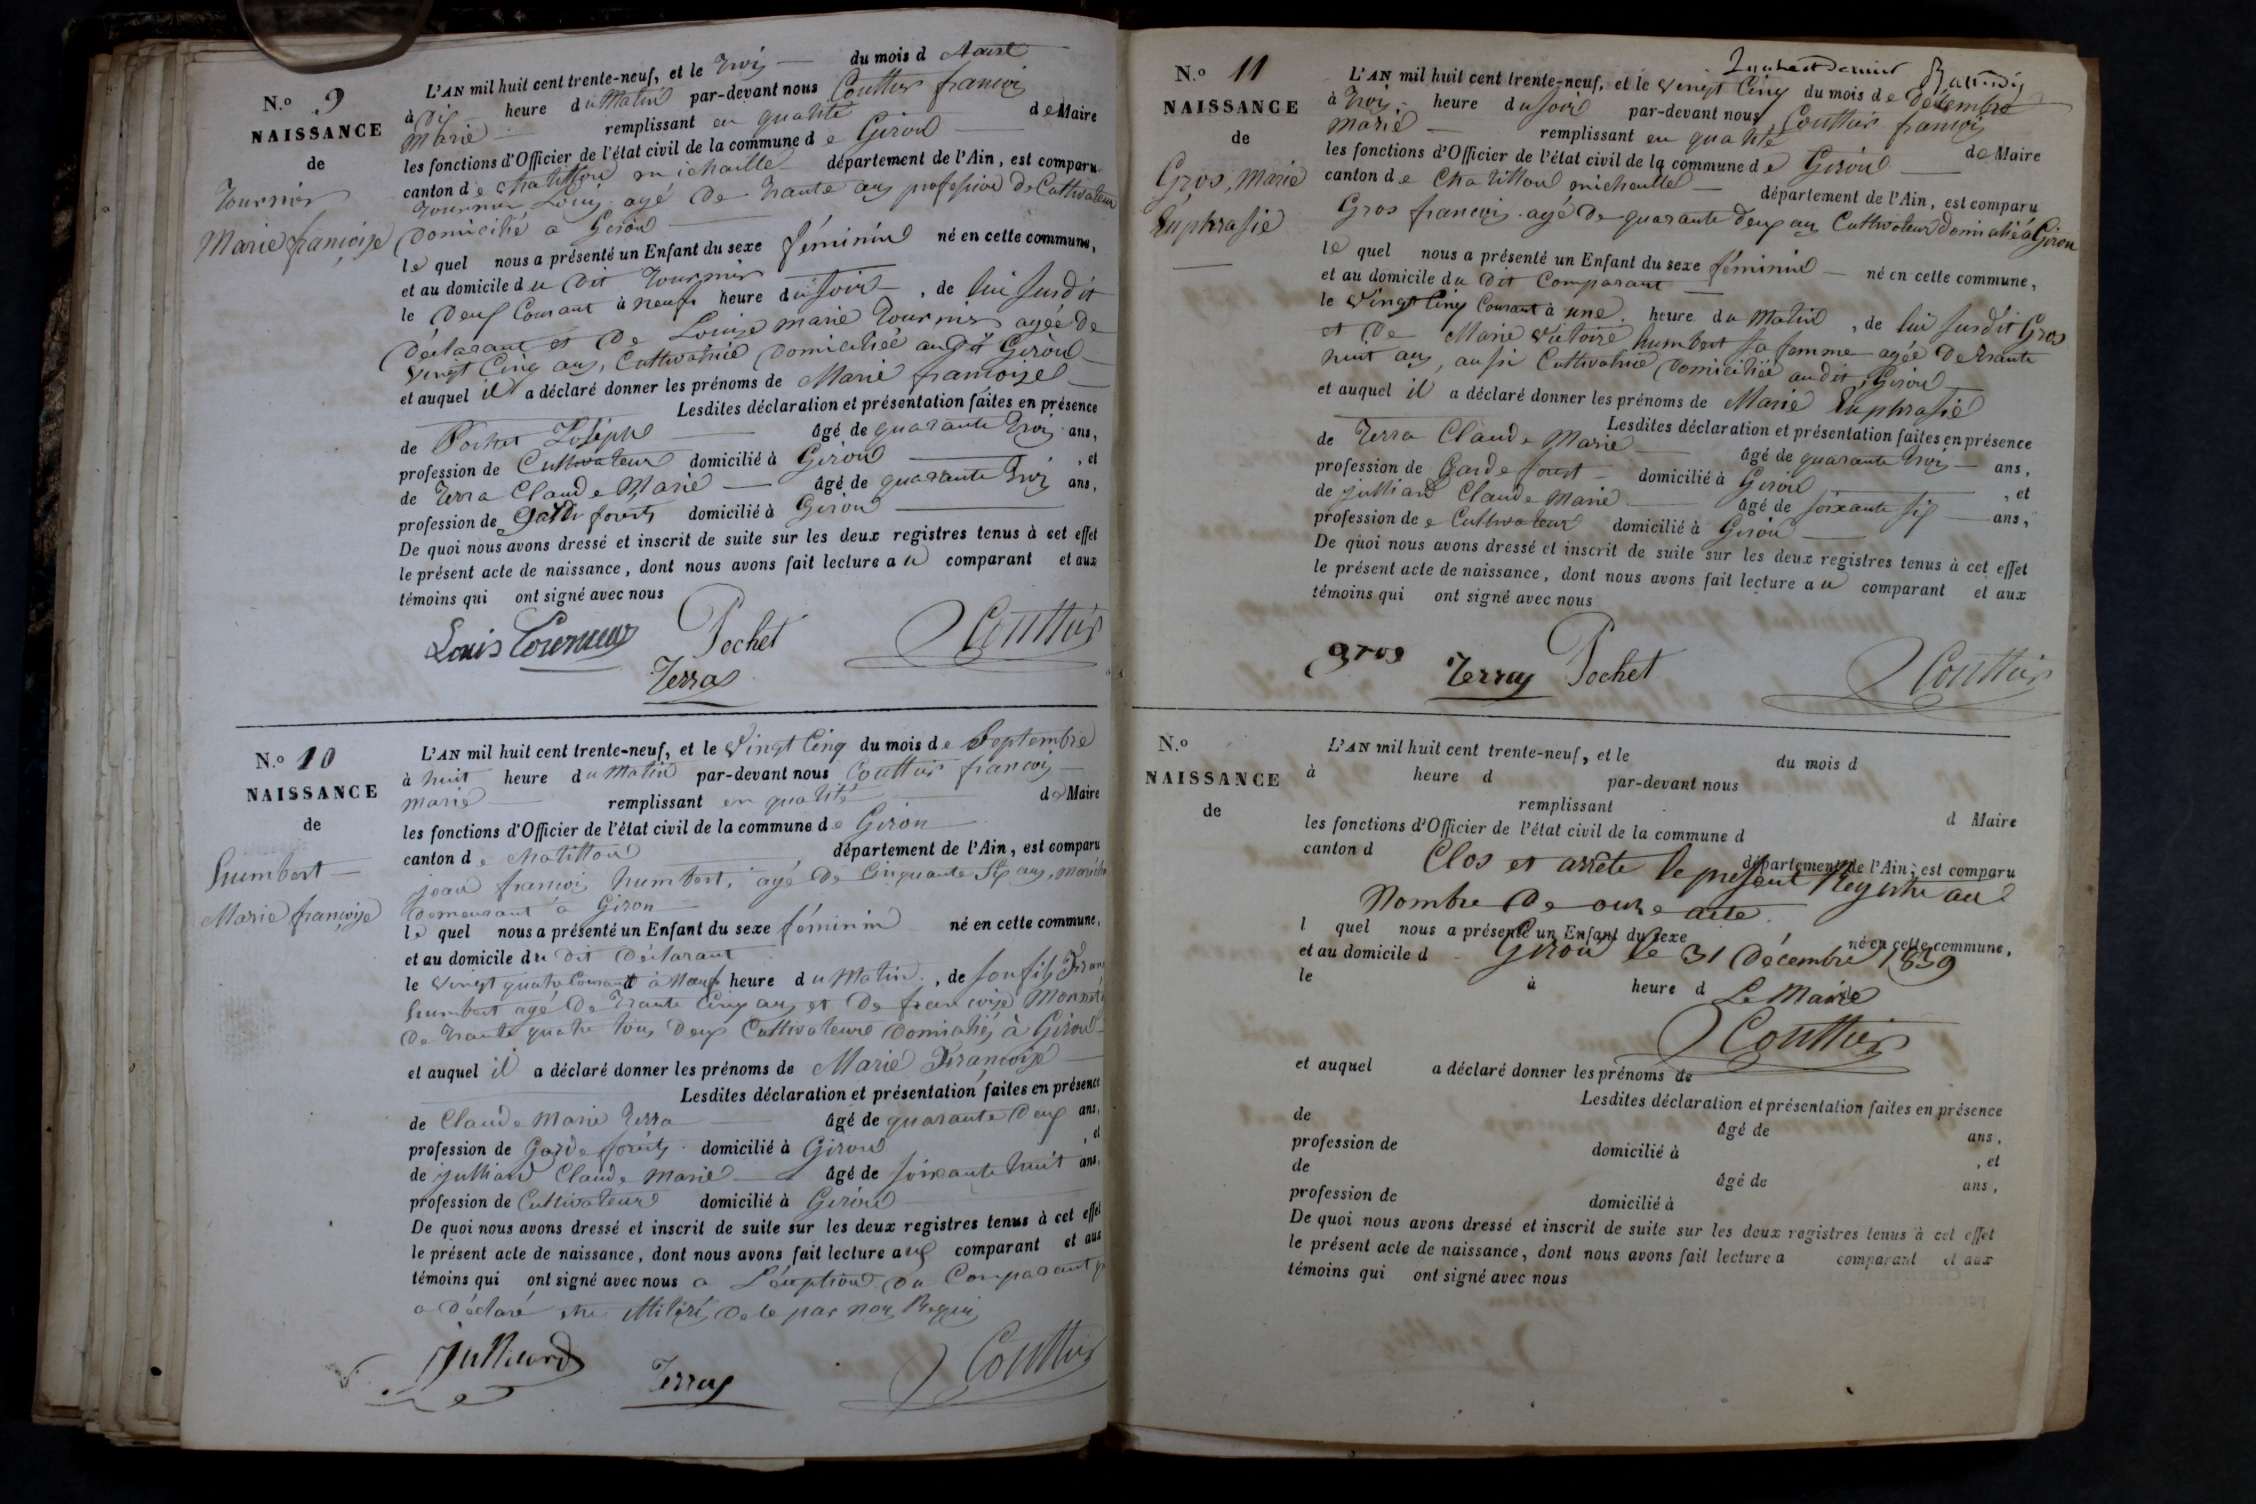 N.o 9
NAISSANCE
de
Tournier
Marie françoise
L'AN mil huit cent trente-neuf, et le trois du mois d Aout
à dix heure du Matin par-devant nous Couttier francois
Marie remplissant en qualité de Maire
les fonctions d'Officier de l'état civil de la commune de Giron
canton de Chatillon michaille département de l'Ain, est comparu
Tournier Louis agé de trante ans profession de Cultivateur
domicilié a Giron
le quel nous a présenté un Enfant du sexe féminin né en cette commune,
et au domicile du dit Tournier
le deux Courant à neuf heure du soir, de lui susdit
déclarant et de Louise marie Tournier agée de
vingt Cinq ans, Cultivatrice domiciliée audit Giron
et auquel il a déclaré donner les prénoms de Marie francoise
Lesdites déclaration et présentation faites en présence
de Pochet Joseph âgé de quarante trois ans,
profession de Cultivateur domicilié à Giron, et
de Terra Claude Marie âgé de quarante trois ans,
profession de Garde forets domicilié à Giron
De quoi nous avons dressé et inscrit de suite sur les deux registres tenus à cet effet
le présent acte de naissance, dont nous avons fait lecture au comparant et aux
témoins qui ont signé avec nous
Louis Tournier Pochet Couttier
Terraz
N.o 10
NAISSANCE
de
humbert
Marie françoise
L'AN mil huit cent trente-neuf, et le Vingt Cinq du mois de Septembre
à huit heure du Matin par-devant nous Couttier francois
marie remplissant en qualité de Maire
les fonctions d'Officier de l'état civil de la commune de Giron
canton de Chatillon département de l'Ain, est comparu
jean francois humbert, agé de Cinquante Six ans,
demeurant a Giron
le quel nous a présenté un Enfant du sexe féminin né en cette commune,
et au domicile du dit déclarant
le vingt quatre Courant à Neuf heure du Matin, de son fils
humbert agé de trante Cinq ans et de francoise
de trante quatre tous deux Cultivateurs domiciliés à Giron
et auquel il a déclaré donner les prénoms de Marie Françoise
Lesdites déclaration et présentation faites en présence
de Claude Marie Terra âgé de quarante deux ans,
profession de Garde forêts domicilié à Giron, et
de julliard Claude Marie âgé de soixante huit ans,
profession de Cultivateur domicilié à Giron
De quoi nous avons dressé et inscrit de suite sur les deux registres tenus à cet effet
le présent acte de naissance, dont nous avons fait lecture aux comparant et aux
témoins qui ont signé avec nous a l'éxeption du Comparant
a déclaré etre illitéré de le par nous Requis
Julliard Terraz Couttier
N.o 11
NAISSANCE
de
Gros, Marie
Euphrasie
L'AN mil huit cent trente-neuf, et le vingt Cinq du mois de décembre
à trois heure du soir par-devant nous Couttier francois
Marie remplissant en qualité de Maire
les fonctions d'Officier de l'état civil de la commune de Giron
canton de Chatillon michaille département de l'Ain, est comparu
Gros francois agé de quarante deux ans Cultivateur domicilié à Giron
le quel nous a présenté un Enfant du sexe féminin né en cette commune,
et au domicile du dit Comparant
le vingt Cinq Courant à une heure du Matin, de lui susdit Gros
et de Marie Victoire humbert sa femme agée de trante
huit ans, aussi Cultivatrice domiciliée audit Giron
et auquel il a déclaré donner les prénoms de Marie Euphrasie
Lesdites déclaration et présentation faites en présence
de Terra Claude Marie âgé de quarante trois ans,
profession de Garde forest domicilié à Giron, et
de julliard Claude Marie âgé de soixante six ans,
profession de Cultivateur domicilié à Giron
De quoi nous avons dressé et inscrit de suite sur les deux registres tenus à cet effet
le présent acte de naissance, dont nous avons fait lecture au comparant et aux
témoins qui ont signé avec nous
gros Terraz Pochet Couttier
N.o
NAISSANCE
de
L'AN mil huit cent trente-neuf, et le du mois d
à heure d par-devant nous
remplissant d Maire
les fonctions d'Officier de l'état civil de la commune d
canton d département de l'Ain, est comparu
Clos et arrêté le présent Registre au
Nombre de onze acte
l quel nous a présenté un Enfant du sexe né en cette commune,
et au domicile d
Giron le 31 décembre 1839
le à heure d , de
Le Maire
Couttier
et auquel a déclaré donner les prénoms de
Lesdites déclaration et présentation faites en présence
de âgé de ans,
profession de domicilié à , et
de âgé de ans,
profession de domicilié à
De quoi nous avons dressé et inscrit de suite sur les deux registres tenus à cet effet
le présent acte de naissance, dont nous avons fait lecture a comparant et aux
témoins qui ont signé avec nous